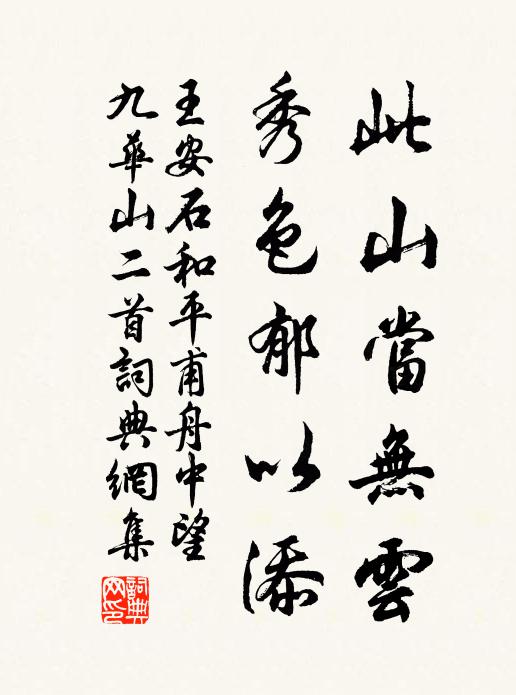 此山當無雲
秀色郁以添
王安石和平甫舟中望
九華山二首詞典網集
詞典
网印